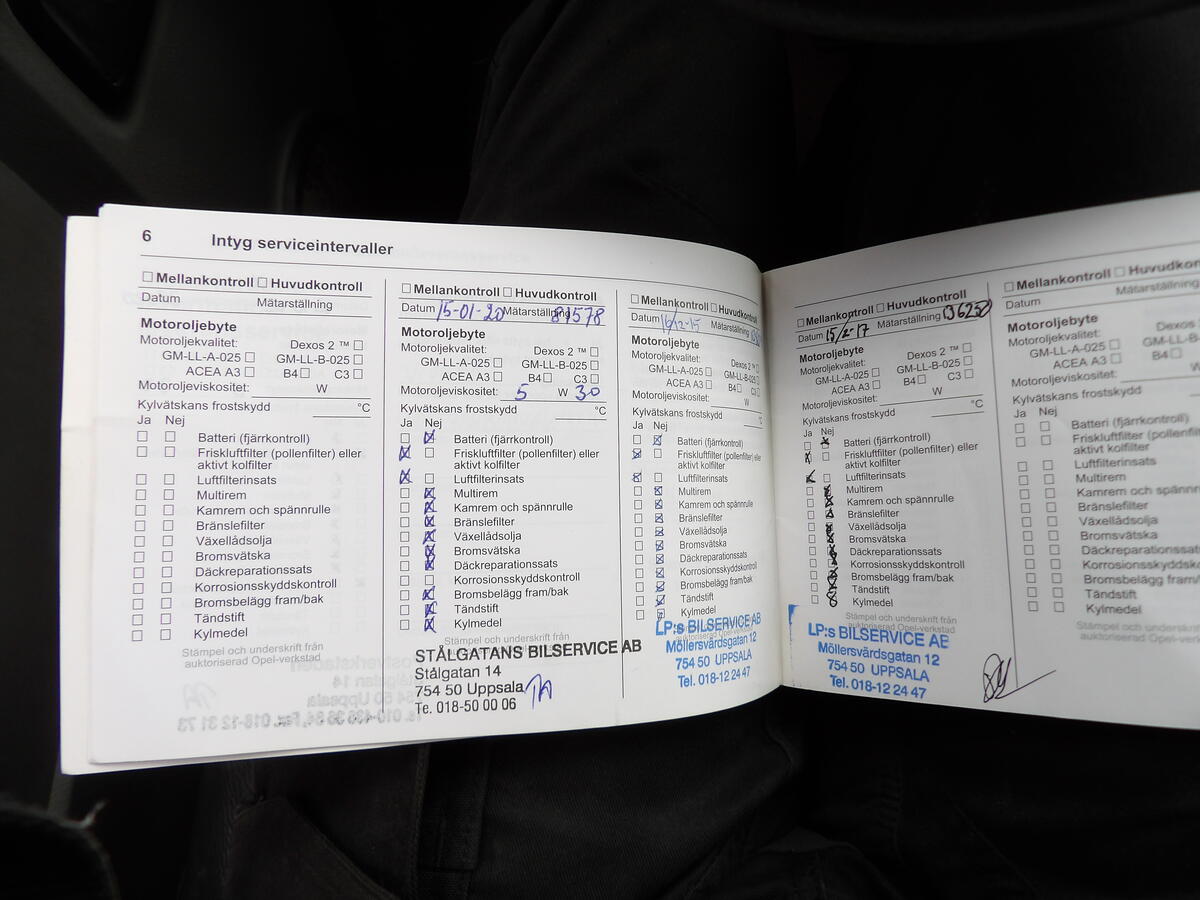 6 Intyg serviceintervaller
☐ Mellankontroll ☐ Huvudkontroll
Datum Mätarställning
Motoroljebyte
Motoroljekvalitet: Dexos 2 ™ ☐
GM-LL-A-025 ☐ GM-LL-B-025 ☐
ACEA A3 ☐ B4 ☐ C3 ☐
Motoroljeviskositet: W
Kylvätskans frostskydd °C
Ja Nej
Batteri (fjärrkontroll)
Friskluftfilter (pollenfilter) eller
aktivt kolfilter
Luftfilterinsats
Multirem
Kamrem och spännrulle
Bränslefilter
Växellådsolja
Bromsvätska
Däckreparationssats
Korrosionsskyddskontroll
Bromsbelägg fram/bak
Tändstift
Kylmedel
Stämpel och underskrift från
auktoriserad Opel-verkstad
☐ Mellankontroll ☐ Huvudkontroll
Datum 15-01-20 Mätarställning 81578
Motoroljebyte
Motoroljekvalitet: Dexos 2 ™ ☐
GM-LL-A-025 ☐ GM-LL-B-025 ☐
ACEA A3 ☐ B4 ☐ C3 ☐
Motoroljeviskositet: 5 W 30
Kylvätskans frostskydd °C
Ja Nej
Batteri (fjärrkontroll)
Friskluftfilter (pollenfilter) eller
aktivt kolfilter
Luftfilterinsats
Multirem
Kamrem och spännrulle
Bränslefilter
Växellådsolja
Bromsvätska
Däckreparationssats
Korrosionsskyddskontroll
Bromsbelägg fram/bak
Tändstift
Kylmedel
Stämpel och underskrift från
auktoriserad Opel-verkstad
STÅLGATANS BILSERVICE AB
Stålgatan 14
754 50 Uppsala
Te. 018-50 00 06
☐ Mellankontroll ☐ Huvudkontroll
Datum 16/12-15 Mätarställning
Motoroljebyte
Motoroljekvalitet: Dexos 2 ™
GM-LL-A-025 ☐ GM-LL-B-025
ACEA A3 ☐ B4 ☐ C3
Motoroljeviskositet: W
Kylvätskans frostskydd °C
Ja Nej
Batteri (fjärrkontroll)
Friskluftfilter (pollenfilter) eller
aktivt kolfilter
Luftfilterinsats
Multirem
Kamrem och spännrulle
Bränslefilter
Växellådsolja
Bromsvätska
Däckreparationssats
Korrosionsskyddskontroll
Bromsbelägg fram/bak
Tändstift
Kylmedel
LP:s BILSERVICE AB
Möllersvärdsgatan 12
754 50 UPPSALA
Tel. 018-12 24 47
☐ Mellankontroll ☐ Huvudkontroll
Datum 15/2-17 Mätarställning 136250
Motoroljebyte
Motoroljekvalitet: Dexos 2 ™ ☐
GM-LL-A-025 ☐ GM-LL-B-025 ☐
ACEA A3 ☐ B4 ☐ C3 ☐
Motoroljeviskositet: W
Kylvätskans frostskydd °C
Ja Nej
Batteri (fjärrkontroll)
Friskluftfilter (pollenfilter) eller
aktivt kolfilter
Luftfilterinsats
Multirem
Kamrem och spännrulle
Bränslefilter
Växellådsolja
Bromsvätska
Däckreparationssats
Korrosionsskyddskontroll
Bromsbelägg fram/bak
Tändstift
Kylmedel
Stämpel och underskrift från
auktoriserad Opel-verkstad
LP:s BILSERVICE AB
Möllersvärdsgatan 12
754 50 UPPSALA
Tel. 018-12 24 47
☐ Mellankontroll ☐ Huvudkon
Datum Mätarställning
Motoroljebyte
Motoroljekvalitet: Dexos
GM-LL-A-025 ☐ GM-LL-B-0
ACEA A3 ☐ B4 ☐
Motoroljeviskositet: W
Kylvätskans frostskydd
Ja Nej
Batteri (fjärrkontroll)
Friskluftfilter (pollenfilter
aktivt kolfilter
Luftfilterinsats
Multirem
Kamrem och spännrull
Bränslefilter
Växellådsolja
Bromsvätska
Däckreparationssats
Korrosionsskyddsko
Bromsbelägg fram/bak
Tändstift
Kylmedel
Stämpel och underskrift från
auktoriserad Opel-verkstad